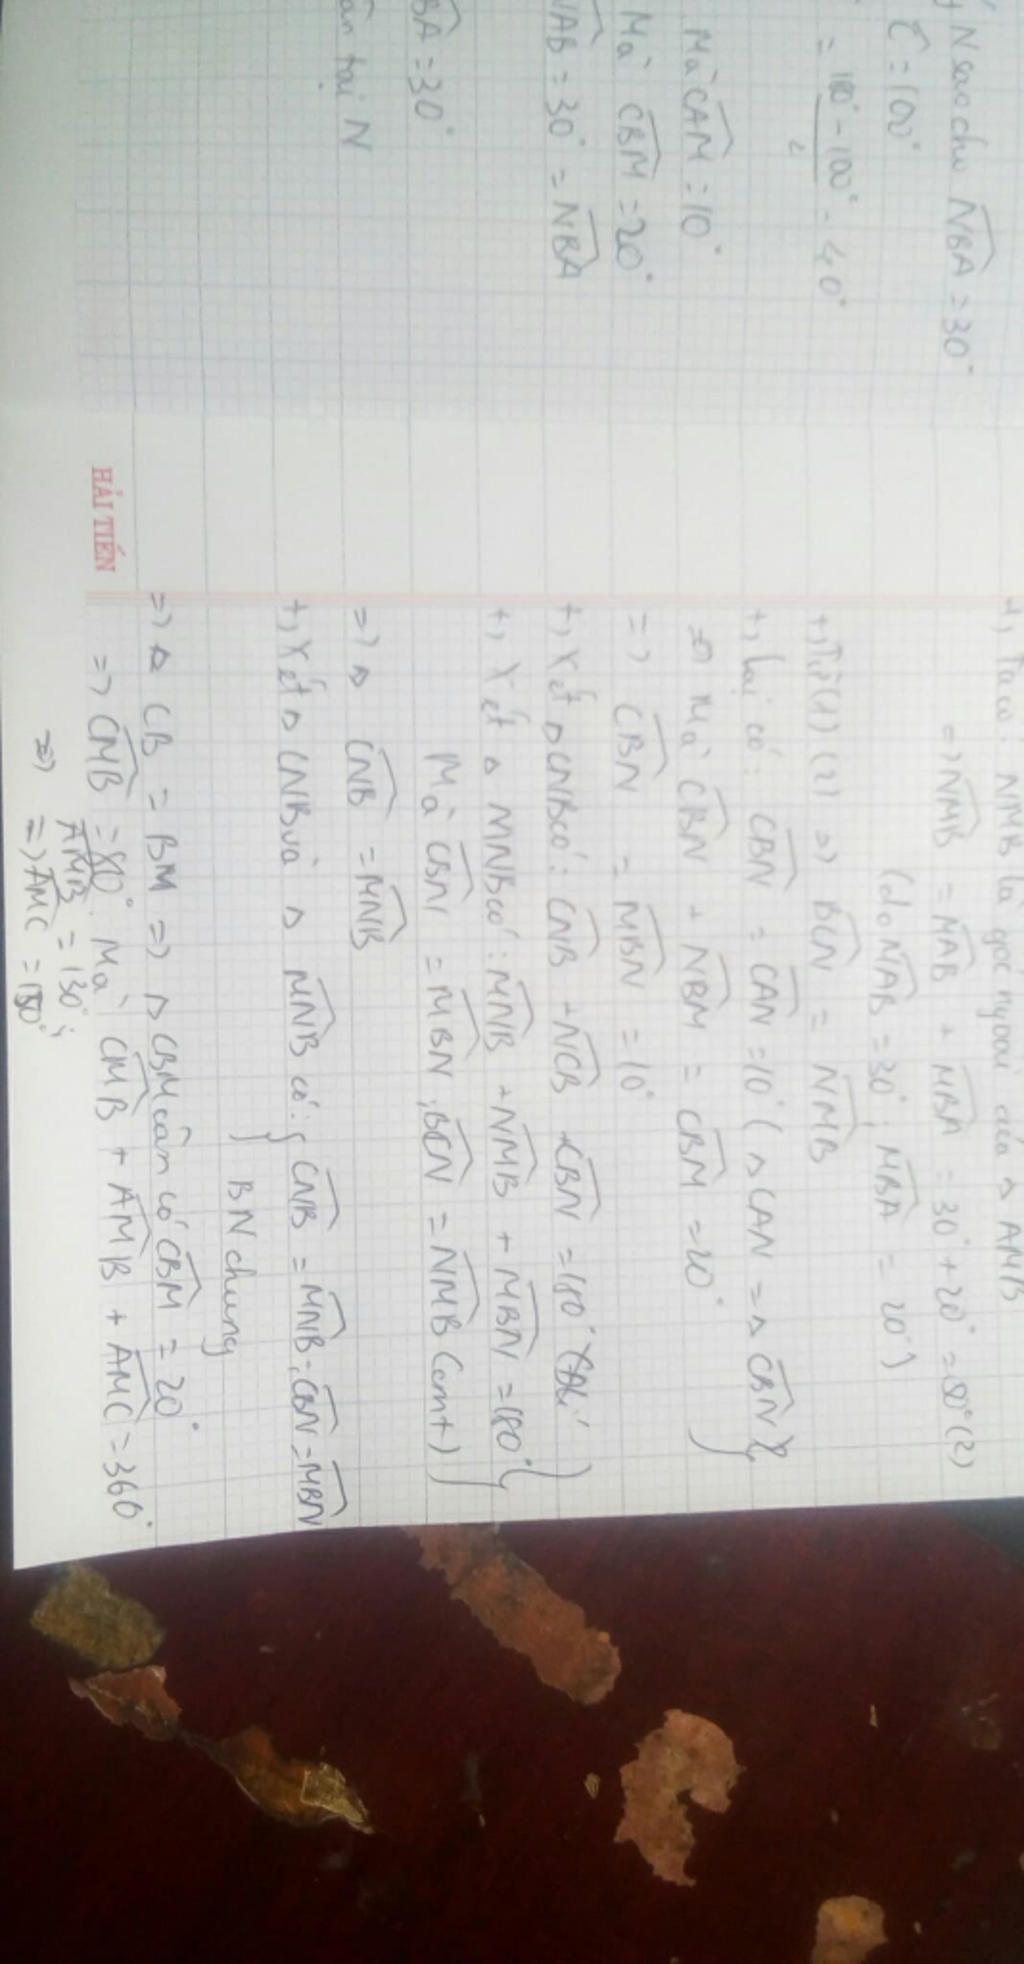 N sao cho NBA = 30°
C = 100°
= 180° - 100° = 40°
2
Mà CAM = 10°
Mà CBM = 20°
NAB = 30° = NBA
BA = 30°
tại N
HẢI TIẾN
+, Ta có: NMB là góc ngoài của Δ AMB
=> NMB = MAB + MBA = 30° + 20° = 50° (2)
(do NAB = 30°; MBA = 20°)
+, Từ (1) (2) => BCN = NMB
+, Lại có: CBN = CAN = 10° (Δ CAN = Δ CBN)
Mà CBN + NBM = CBM = 20°
=> CBN = MBN = 10°
+, Xét Δ CNB có: CNB + NCB + CBN = 180°
+, Xét Δ MNB có: MNB + NMB + MBN = 180°
Mà CBN = MBN; BCN = NMB (cmt)
=> Δ CNB = MNB
+, Xét Δ CNB và Δ MNB có: { CNB = MNB; CBN = MBN
BN chung
=> Δ CB = BM => Δ CBM cân có CBM = 20°
=> CMB = 80°. Mà CMB + AMB + AMC = 360°
AMB = 130°;
=> AMC = 150°